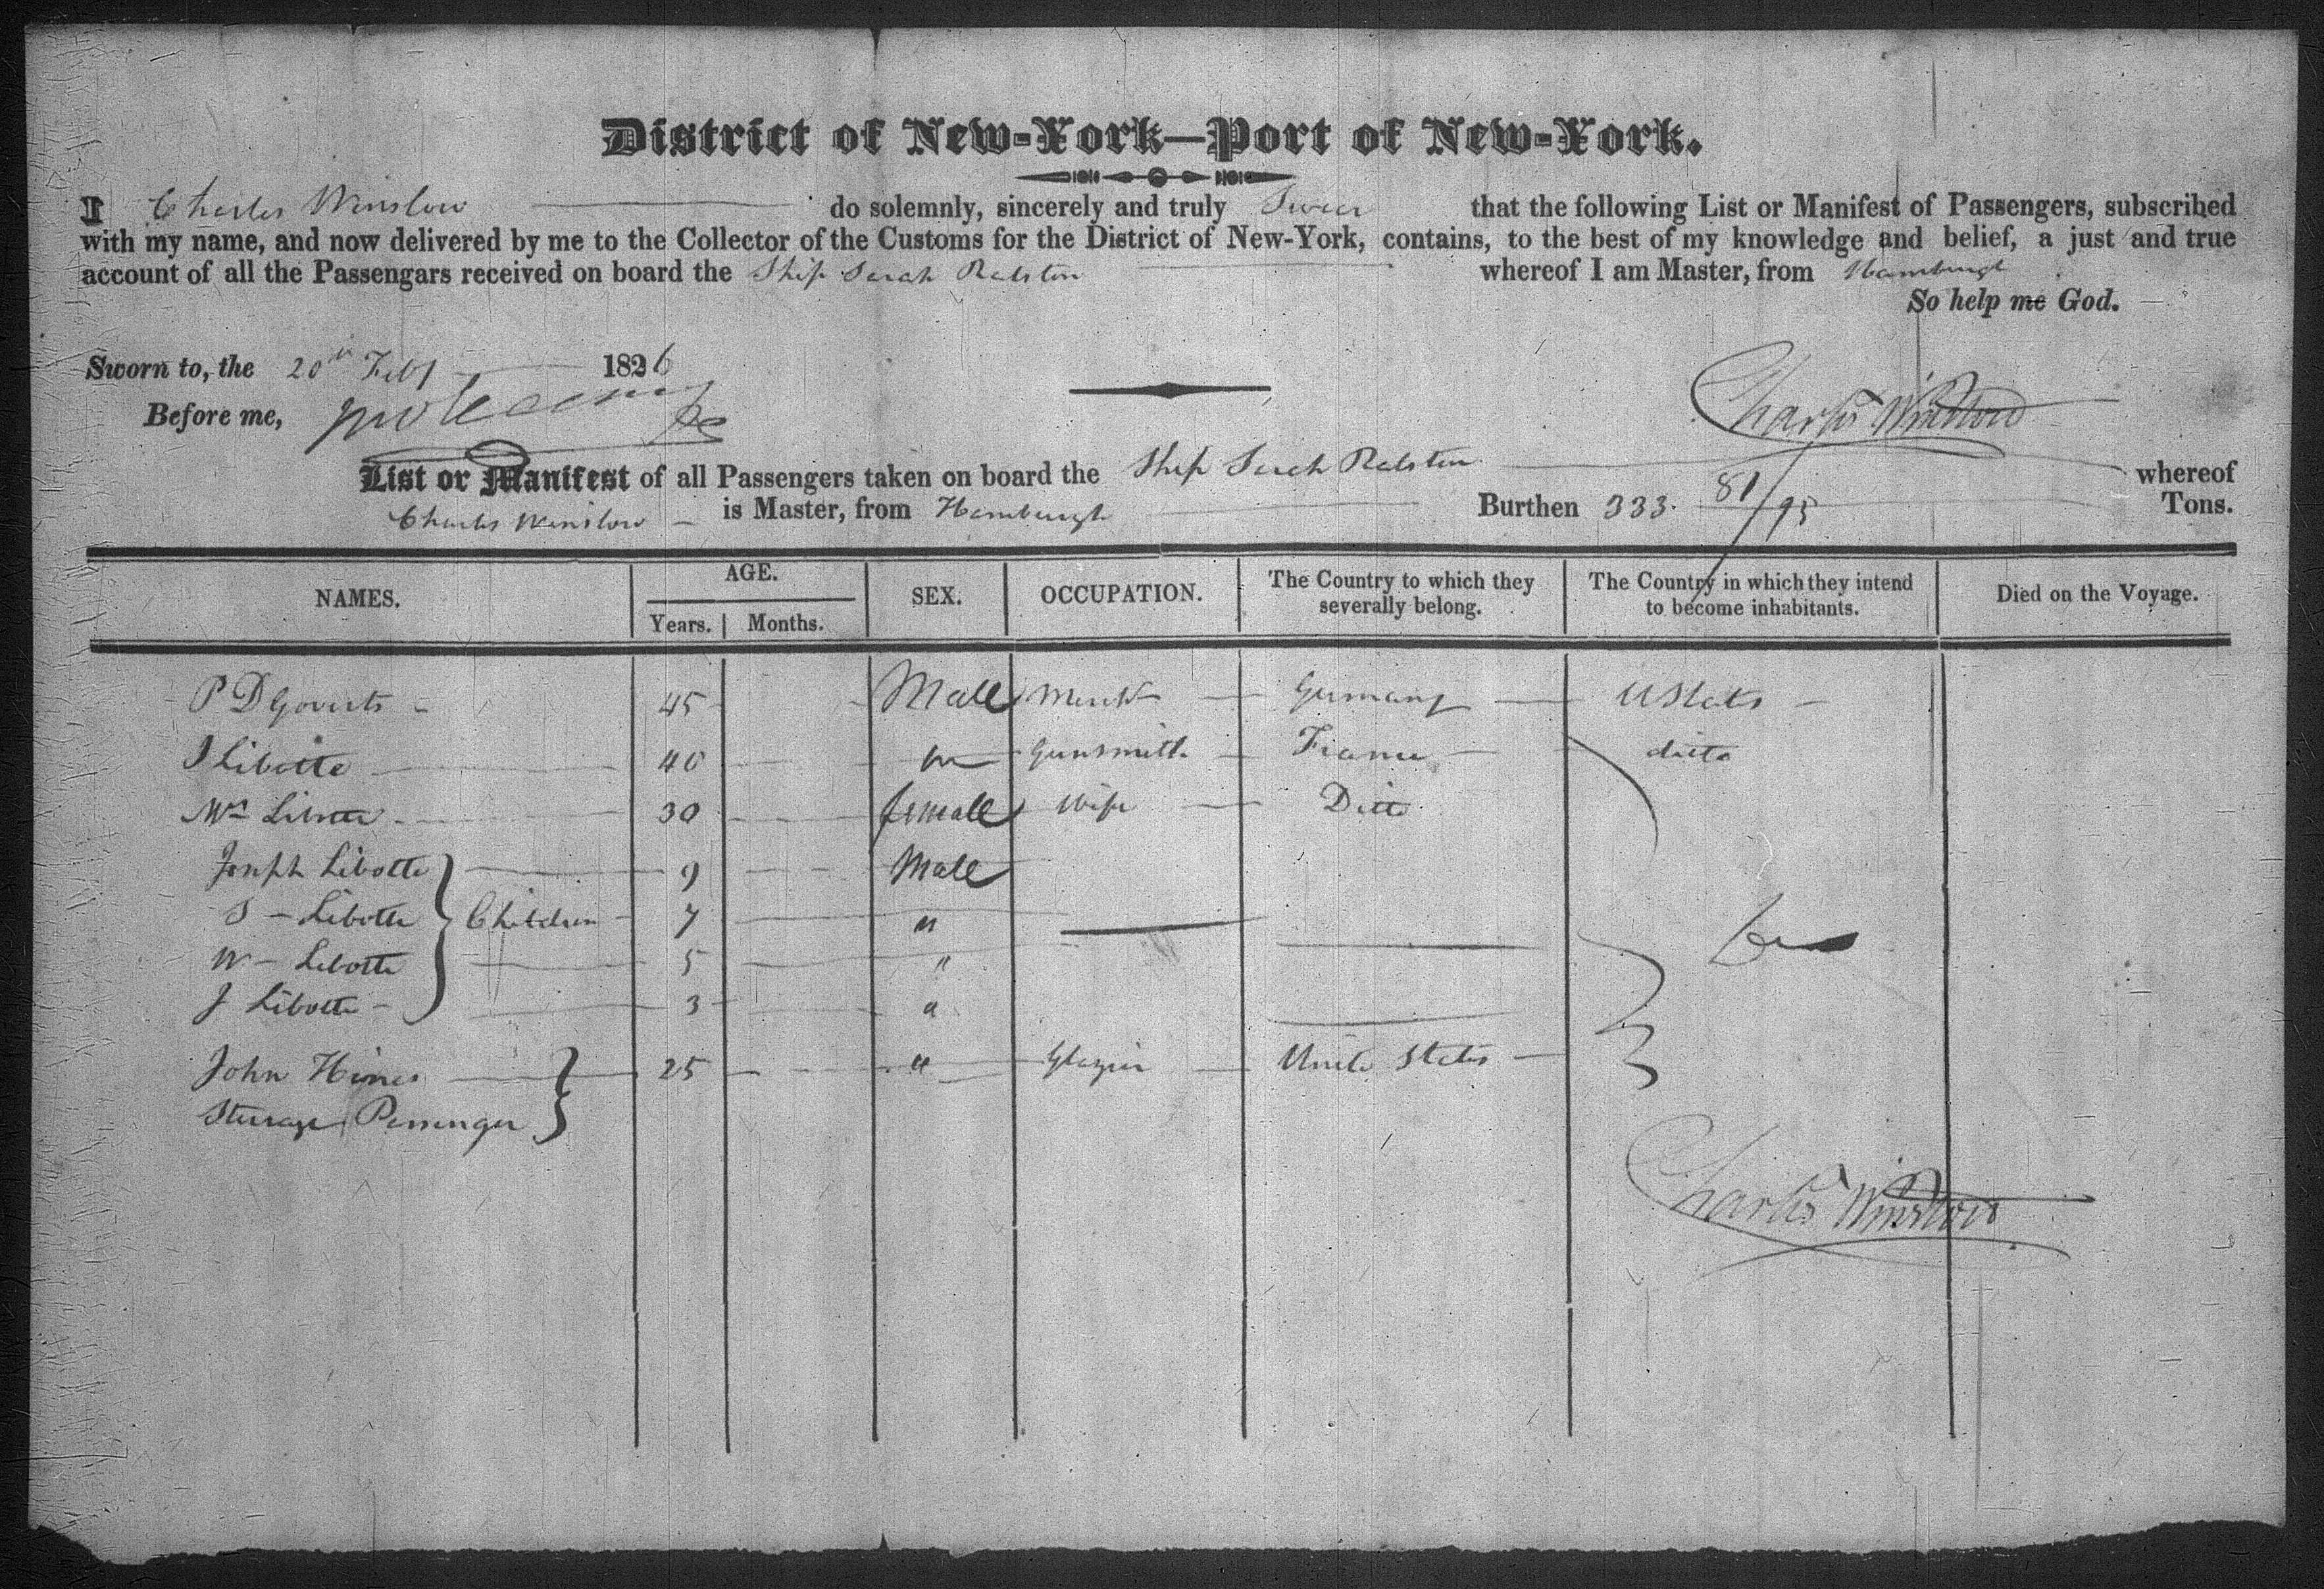 District of New-York—Port of New-York.
I Charles Winslow do solemnly, sincerely and truly Swear that the following List or Manifest of Passengers, subscribed
with my name, and now delivered by me to the Collector of the Customs for the District of New-York, contains, to the best of my knowledge and belief, a just and true
account of all the Passengars received on board the Ship Sarah Ralston whereof I am Master, from Hamburgh
So help me God.
Sworn to, the 20th Feby 1826
Before me,
Charles Winslow
List or Manifest of all Passengers taken on board the Ship Sarah Ralston whereof
Charles Winslow is Master, from Hamburgh Burthen 333. 81/95 Tons.
NAMES. AGE. Years. Months. SEX. OCCUPATION. The Country to which they severally belong. The Country in which they intend to become inhabitants. Died on the Voyage.
P D Goverts - 45 Male Mercht Germany U States
J Libotte 40 m Gunsmith France ditto
Mrs Libotte 30 female Wife Ditto
Joseph Libotte 9 Male
S - Libotte Children 7 "
W - Libotte 5 "
J Libotte - 3 "
John Hines 25 " Glazier United States
Steerage Passenger
Charles Winslow